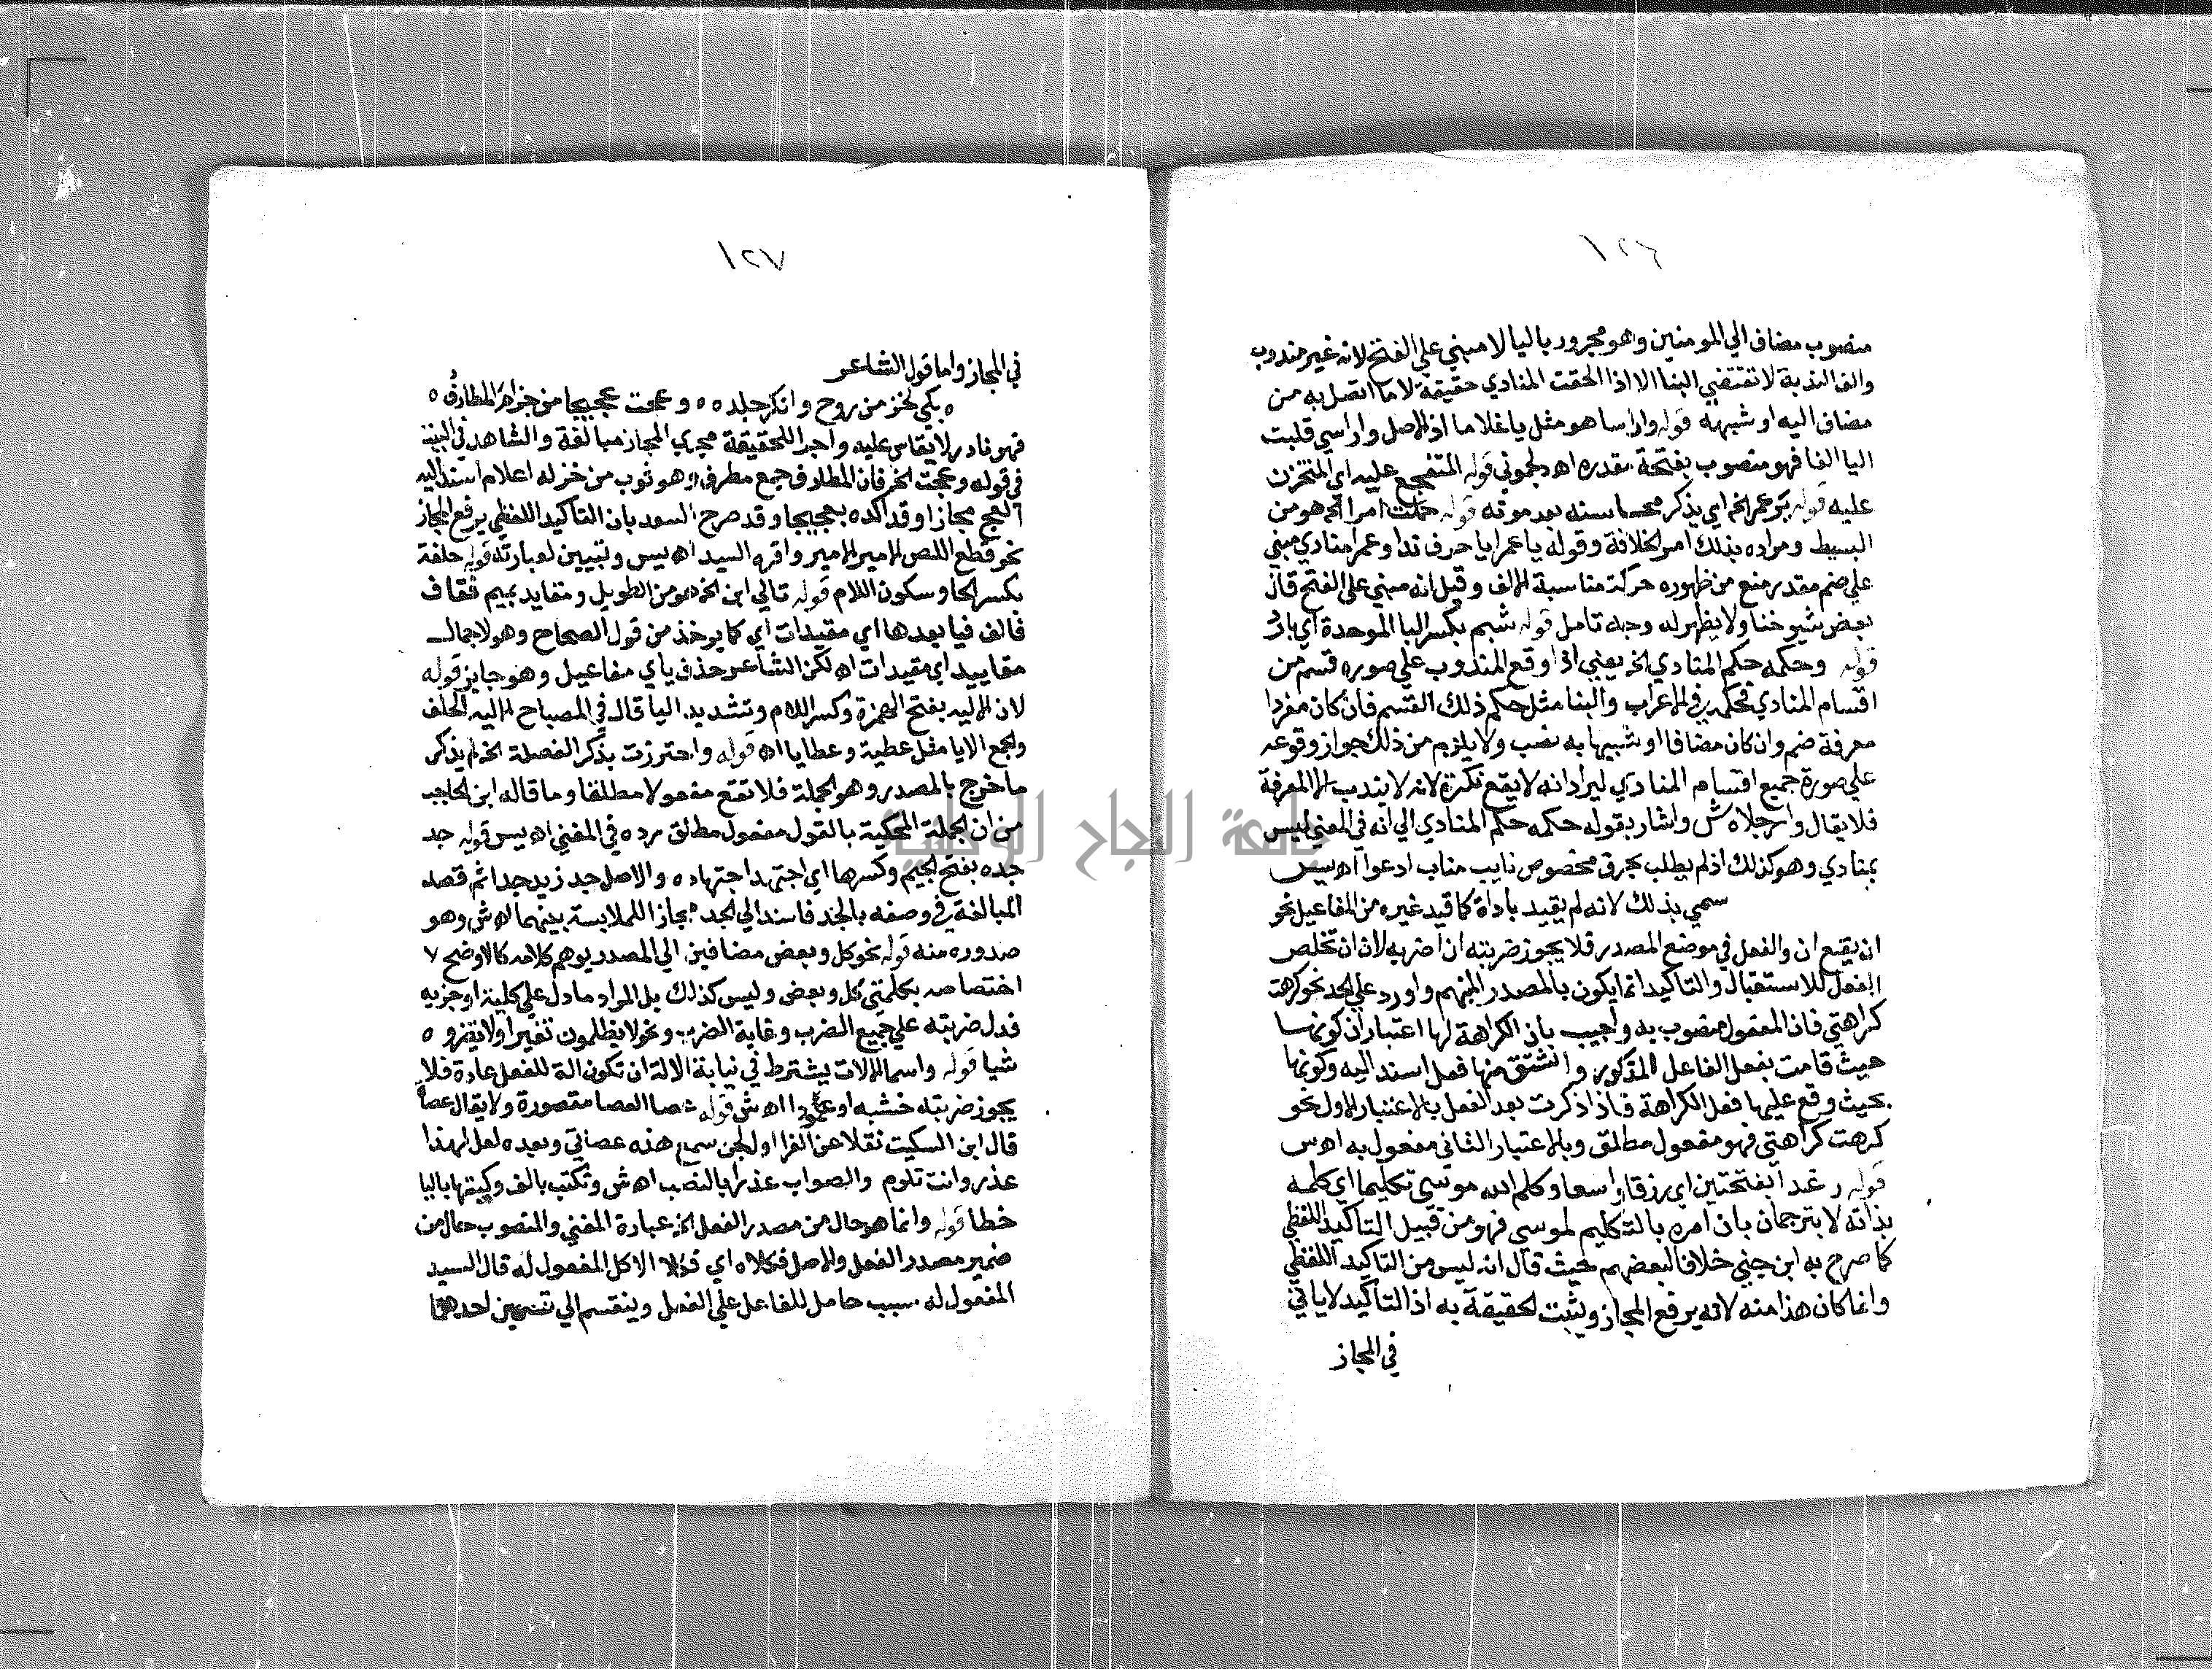 ١٢٦
منصوب مضاف الي المومنين وهو مجرور باليا لا مبني علي الفتح لانه غير مندوب
والف الندبة لا تقتضي البنا الا اذا الحقت المنادي حقيقة لا ما اتصل به من
مضاف اليه او شبهه قوله واراسا هو مثل يا غلاما اذ الاصل واراسي قلبت
اليا الفا فهو منصوب بفتحة مقدره اه دلجوني قوله المتفجع عليه اي المتحزن
عليه قوله بنو عمر الخ اي يذكر محاسنه بعد موته قوله حملت امرا الخ هو من
البسيط ومراده بذلك امر الخلافة وقوله يا عمرا يا حرف ندا وعمرا منادي مبني
علي ضم مقدر منع من ظهوره حركة مناسبة الالف وقيل انه مبني علي الفتح قال
بعض شيوخنا ولا يظهر له وجه تامل قوله شبم بكسر البا الموحدة اي بارد
قوله وحكمه حكم المنادي الخ يعني اذا وقع المندوب علي صوره قسم من
اقسام المنادي فحكمه في الاعراب والبنا مثل حكم ذلك القسم فان كان مفردا
معرفة ضم وان كان مضافا او شبيها به نصب ولا يلزم من ذلك جواز وقوعه
علي صورة جميع اقسام المنادي ليرد انه لا يقع نكرة لانه لا يندب الا المعرفة
فلا يقال وارجلاه ش واشار بقوله حكمه حكم المنادي الي انه في المعني ليس
بمنادي وهو كذلك اذ لم يطلب بحرف مخصوص نايب مناب ادعوا اه يس
سمي بذلك لانه لم يقيد باداة كما قيد غيره من المفاعيل نحو
ان يقع ان والفعل في موضع المصدر فلا يجوز ضربته ان اضربه لان ان تخلص
الفعل للاستقبال والتاكيد انما يكون بالمصدر المبهم واورد علي الحد نحو كرهت
كراهتي فان المفعول منصوب به واجيب بان الكراهة لها اعتباران كونها
حيث قامت بفعل الفاعل المذكور واشتق منها فعل اسند اليه وكونها
بحيث وقع عليها فعل الكراهة فاذا ذكرت بعد الفعل بالاعتبار الاول نحو
كرهت كراهتي فهو مفعول مطلق وبالاعتبار الثاني مفعول به اه س
قوله رغدا بفتحتين اي رزقا واسعا وكلم الله موسي تكليما اي كلمه
بذاته لا بترجمان بان امره بالتكليم لموسي فهو من قبيل التاكيد اللفظي
كما صرح به ابن جني خلافا لبعضهم حيث قال انه ليس من التاكيد اللفظي
وانما كان هذا منه لانه يرفع المجاز ويثبت الحقيقة به اذ التاكيد لا ياتي
في المجاز
١٢٧
في المجاز واما قول الشاعر
بكي الخز من روح وانكر جلده وعجت عجيجا من جزام المطارف
فهو نادر لا يقاس عليه واجرا للحقيقة مجري المجاز مبالغة والشاهد في البيت
في قوله وعجت الخ فان المطارف جمع مطرف وهو ثوب من خز له اعلام اسند اليه
العج مجازا وقد اكده بعجيجا وقد صرح السعد بان التاكيد اللفظي يرفع المجاز
نحو قطع اللص الامير الامير واقره السيد اه يس وتبيين لعبارته قوله حلفة
بكسر الحا وسكون اللام قوله تالي ابن الخ هو من الطويل ومقايد بميم فقاف
فالف فيا بعدها اي مقيدات اي كما يوخذ من قول الصحاح وهو لاجمال
مقاييد اي مقيدات اه لكن الشاعر حذف ياي مفاعيل وهو جايز قوله
لان الاليه بفتح الهمزة وكسر اللام وتشديد اليا قال في المصباح الاليه الحلف
والجمع الايا مثل عطية وعطايا اه قوله واحترزت بذكر الفضلة الخ لم يذكر
ما خرج بالمصدر وهو الجملة فلا تقع مفعولا مطلقا وما قاله ابن الحاجب
من ان الجملة المحكية بالقول مفعول مطلق مرده في المغني اه يس قوله جد
جده بفتح الجيم وكسرها اي اجتهد اجتهاده والاصل جد زيد جدا ثم قصد
المبالغة في وصفه بالجد فاسند الي الجد مجازا للملابسة بينهما اه ش وهو
صدوره منه قوله نحو كل وبعض مضافين الي المصدر يوهم كلامه كالاوضح
اختصاصه بكلمتي كل وبعض وليس كذلك بل المراد ما دل علي كلية او جزيه
فدل ضربته علي جميع الضرب وغاية الضرب ونحو لا يظلمون نقيرا ولا يضروه
شيا قوله واسما الالات يشترط في نيابة الالة ان تكون الة للفعل عادة فلا
يجوز ضربته خشبه او عمودا اه ش قوله عصا العصا مقصورة ولا يقال عصاة
قال ابن السكيت نقلا عن الفرا اول لحن سمع هذه عصاتي وبعده لعل لهذا
عذر وانت تلوم والصواب عذرا بالنصب اه ش وتكتب بالف وكتبها باليا
خطا قوله وانما هو حال من مصدر الفعل الخ عبارة المغني والمنصوب حال من
ضمير مصدر الفعل والاصل فكلاه اي فكلا الاكل المفعول له قال السيد
المفعول له سبب حامل للفاعل علي الفعل وينقسم الي قسمين احدهما
جامعة النجاح الوطنية